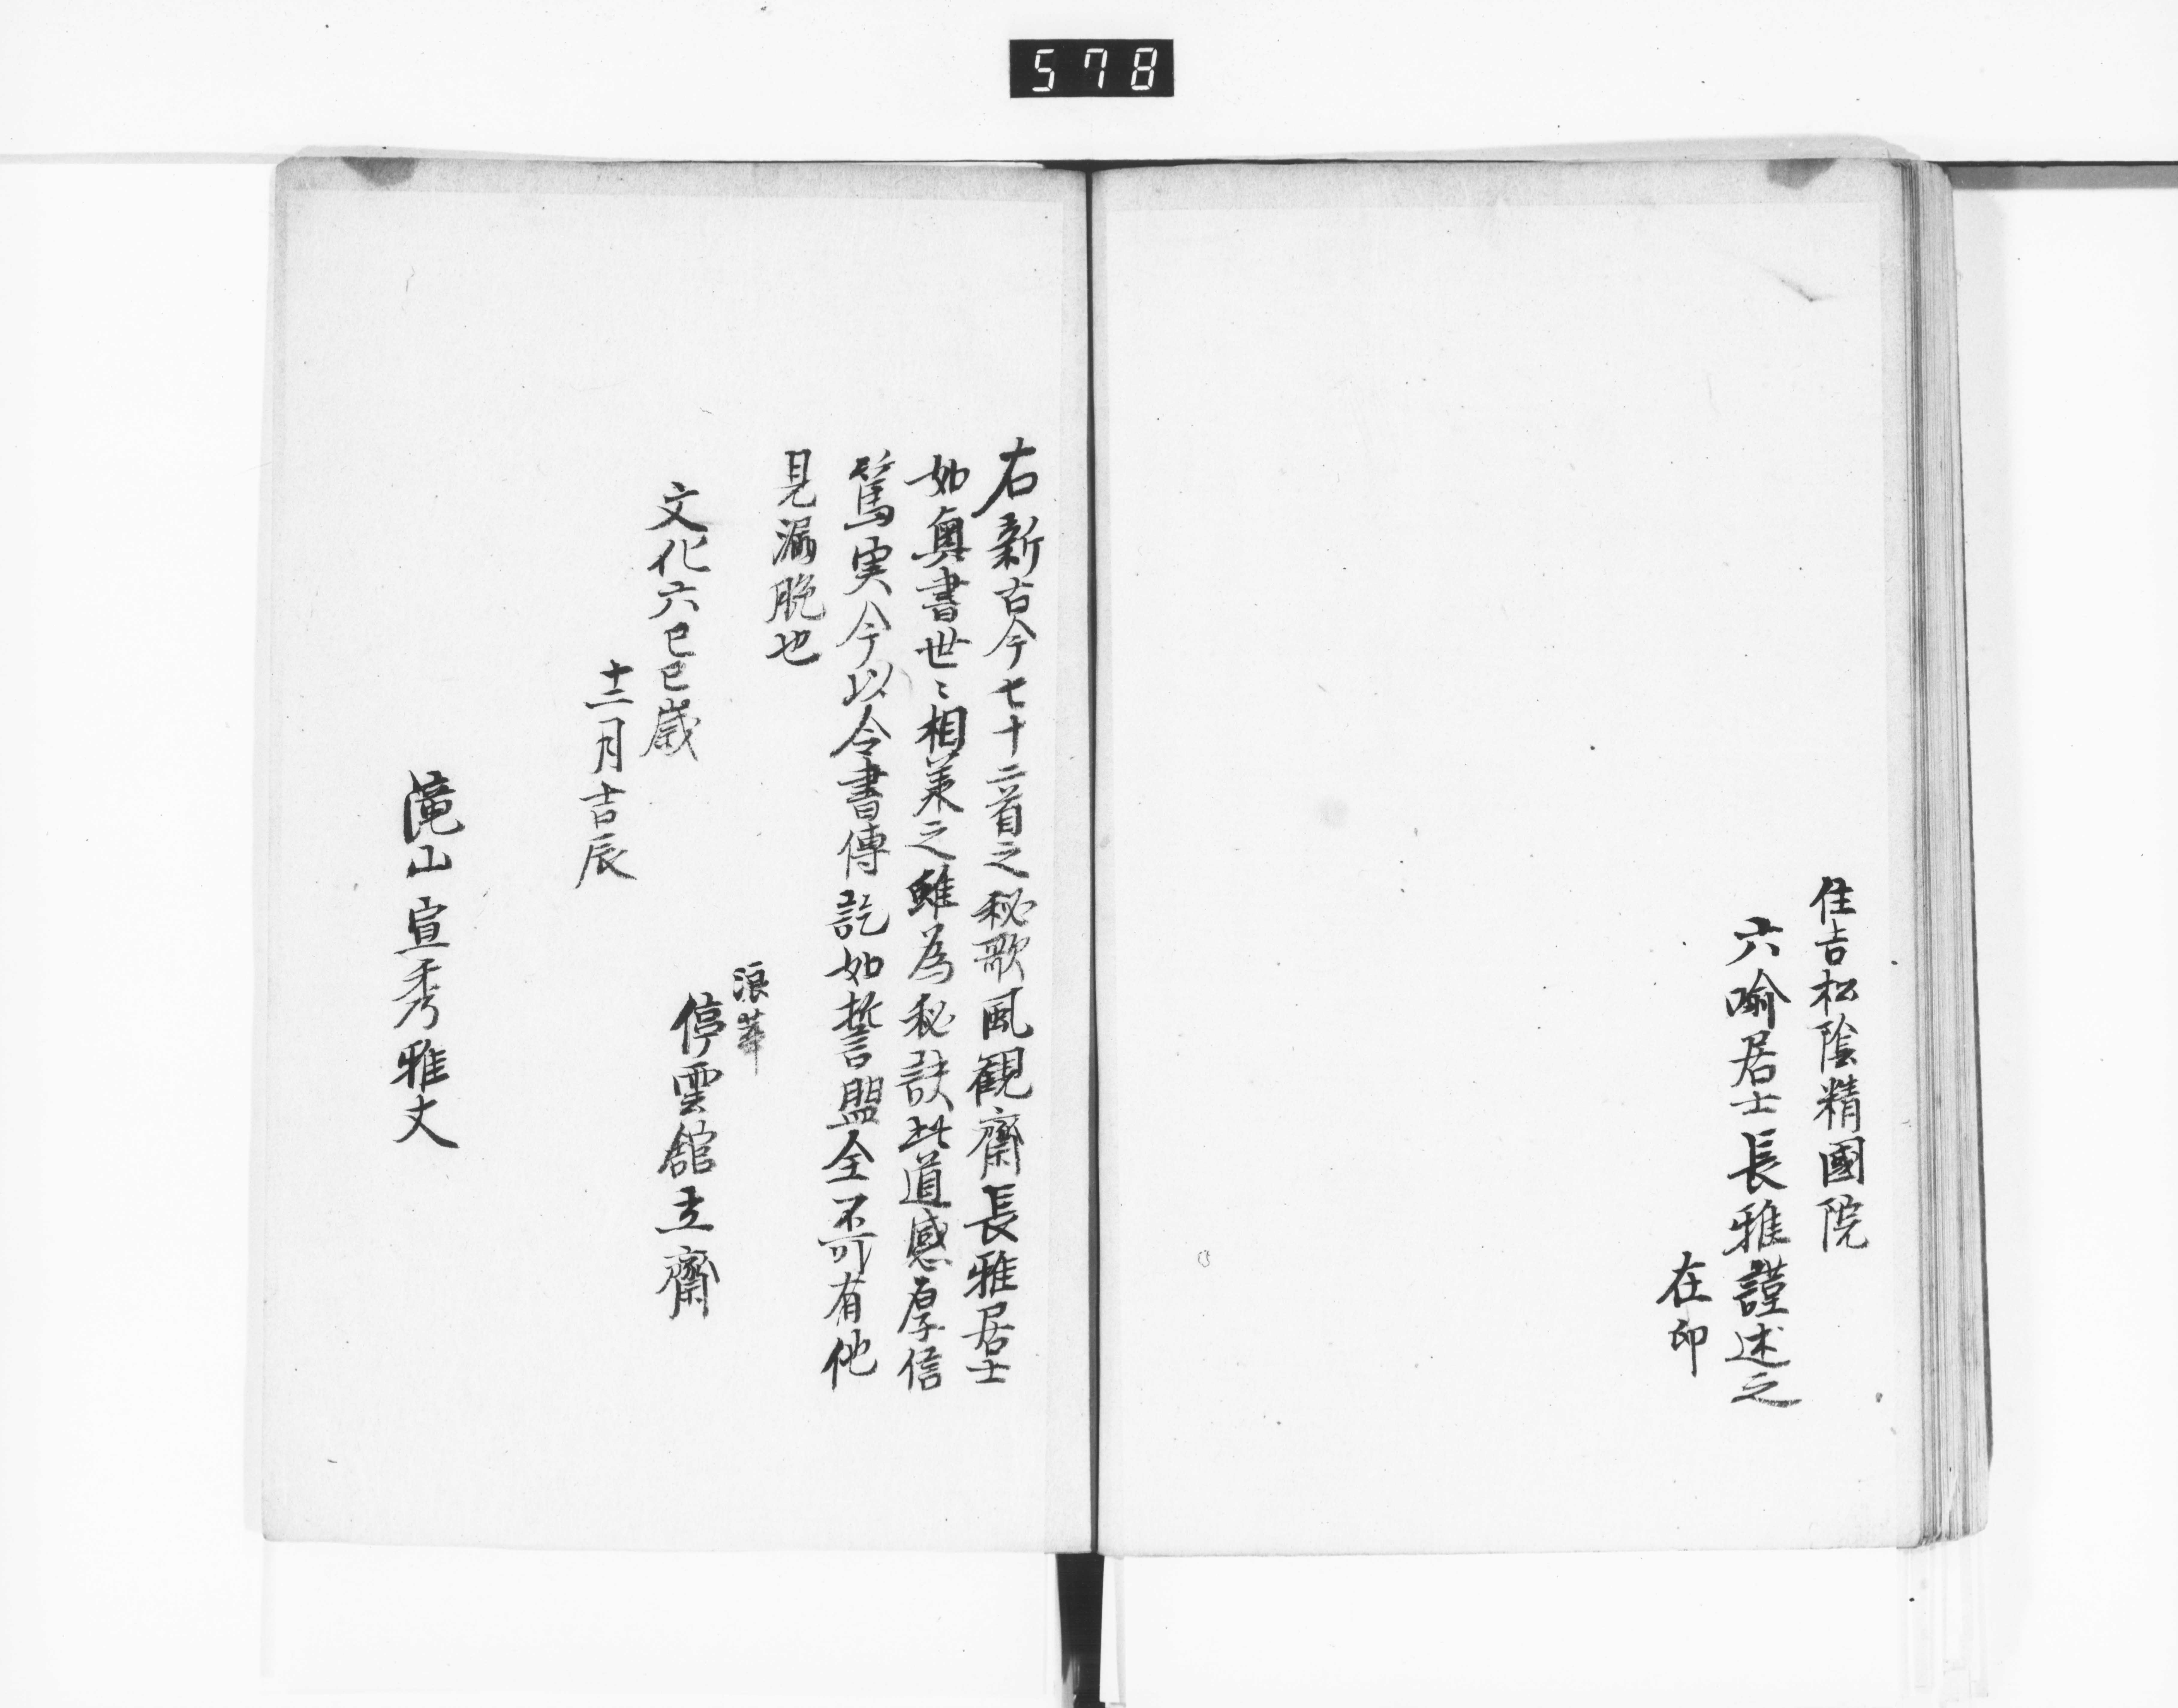 578
住吉松陰精國院
六喩居士長雅謹述之
在印
右新古今七十二首之秘歌風観齋長雅居士
如奥書世〻相兼之雖為秘訣此道感厚信
篤実今以令書傳訖如誓盟全不可有他
見漏脱也
文化六己巳歳
十二月吉辰
浪華
停雲舘立齋
滝山宣秀雅丈